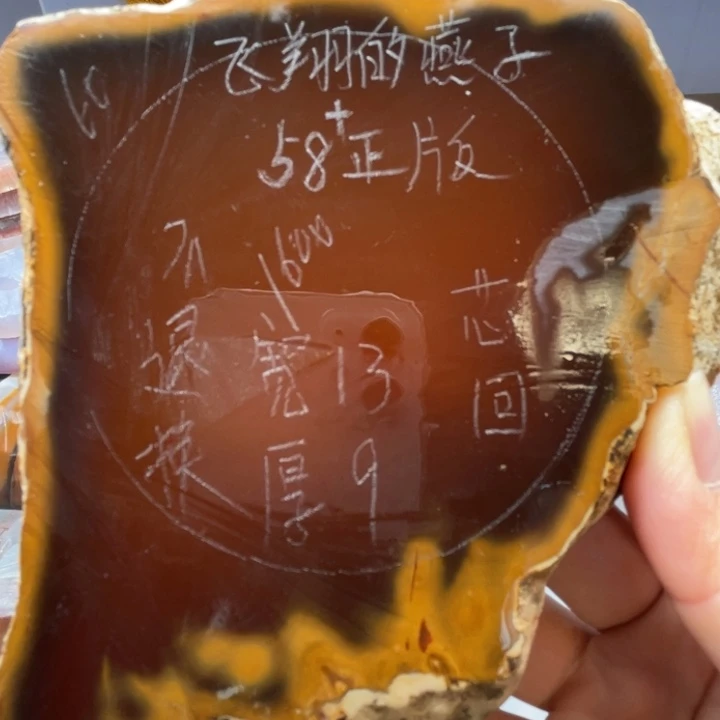 飞翔的燕子
58⁺正版
不退换
1600
宽13
厚9
芯回